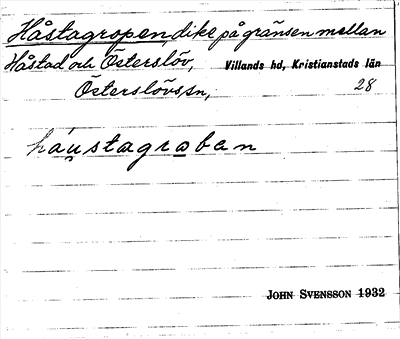 Håstagropen, dike på gränsen mellan
Håstad och Österslöv, Villands hd, Kristianstads län
Österslövs sn, 28
háu̯stagraban
JOHN SVENSSON 1932